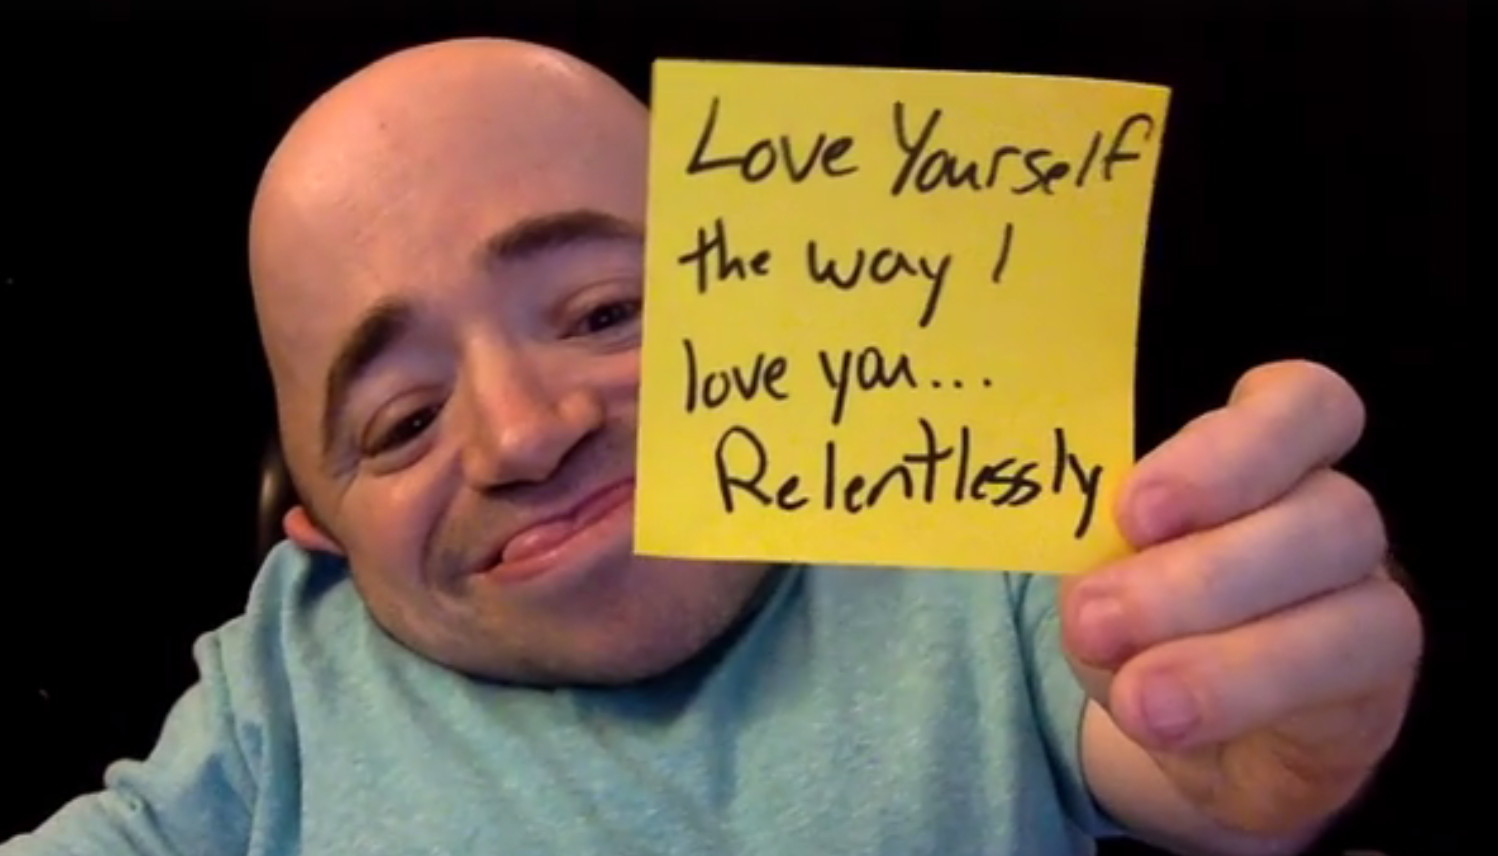 Love Yourself
the way I
love you...
Relentlessly